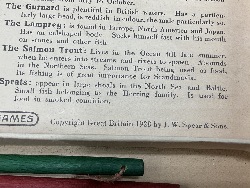 to October.
The Gurnard is plentiful in British waters. Has a
large head, is reddish in colour, the male particularly so.
The Lamprey: is found in Europe, North America and Japan.
Has an eel-shaped body. Sucks himself fast with his mouth
on stones and other fish.
The Salmon Trout: Lives in the Ocean till it is
when he enters into streams and rivers to spawn.
in the Northern Seas. Salmon Trout being used as food,
its fishing is of great importance for Scandinavia.
Sprats: appear in large shoals in the North Sea and Baltic.
Small fish belonging to the Herring family. Is used for
food in smoked condition.
GAMES
Copyright Great Britain by J. W. Spear & Sons